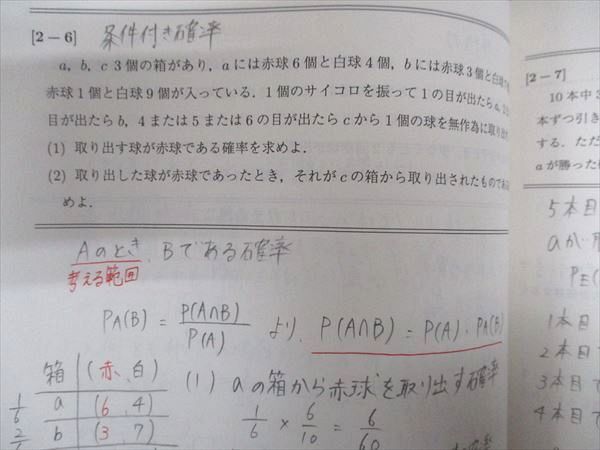 [2-6] 条件付き確率
a, b, c 3個の箱があり，aには赤球6個と白球4個，bには赤球3個と白球
赤球1個と白球9個が入っている．1個のサイコロを振って1の目が出たらa，2
目が出たらb，4または5または6の目が出たらcから1個の球を無作為に取り出
(1) 取り出す球が赤球である確率を求めよ．
(2) 取り出した球が赤球であったとき，それがcの箱から取り出されたもので
めよ．
Aのとき、Bである確率
考える範囲
PA(B) = P(A∩B)/P(A) より、P(A∩B) = P(A)・PA(B)
箱 (赤、白) (1) aの箱から赤球を取り出す確率
1/6 a (6, 4)
1/6 × 6/10 = 6/60
b (3, 7)
[2-7]
10本中3
本ずつ引き
する．ただ
aが勝った
5本目
aが
PE(
1本目
2本目で
3本目で
4本目で